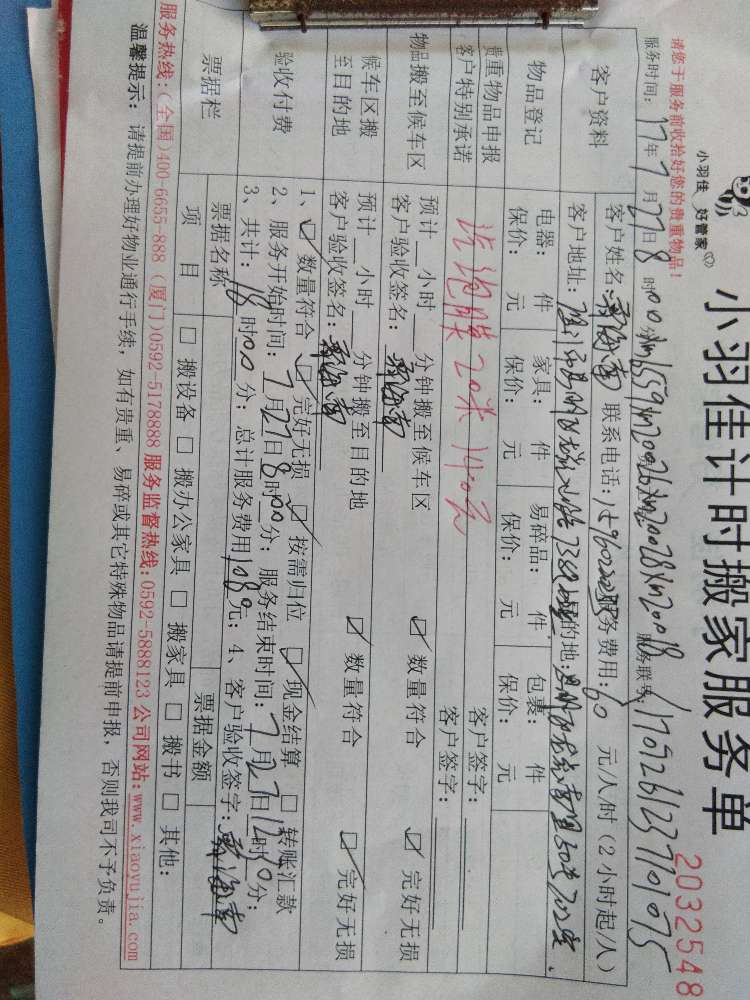 小羽佳 好管家
小羽佳计时搬家服务单
2032548
请您于服务前收拾好您的贵重物品！
服务时间：17年7月27日8时00分
服务联号：
客户资料
客户姓名： 联系电话： 服务费用：60元/人/时（2小时起/人）
客户地址： 目的地：
物品登记
电器： 件 家具： 件 易碎品： 件 包裹： 件
保价： 元 保价： 元 保价： 元 保价： 元
贵重物品申报 客户签字：
客户特别承诺 客户签字：
泡膜20米 140元
物品搬至候车区
预计 小时 分钟搬至候车区
客户验收签名： ☑ 数量符合 ☑ 完好无损
候车区搬至目的地
预计 小时 分钟搬至目的地
客户验收签名： ☑ 数量符合 ☑ 完好无损
验收付费
1、☑ 数量符合 ☑ 完好无损 ☑ 按需归位 ☑ 现金结算 □ 转账汇款
2、服务开始时间：7月27日8时00分；服务结束时间：7月27日12时30分；
3、共计：18时00分；总计服务费用1080元；4、客户验收签字：
票据栏
票据名称 票据金额
项目 □ 搬设备 □ 搬办公家具 □ 搬家具 □ 搬书 □ 其他：
服务热线：(全国)400-6655-888 (厦门)0592-5178888 服务监督热线：0592-5888123 公司网站：www.xiaoyujia.com
温馨提示：请提前办理好物业通行手续，如有贵重、易碎或其它特殊物品请提前申报，否则我司不予负责。